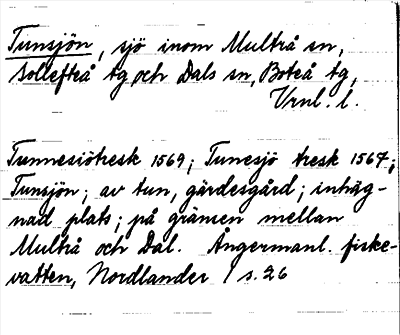 Tunsjön, sjö inom Multrå sn,
Sollefteå tg, och Dals sn, Boteå tg,
Vrnl. l.
Tunnesiötresk 1569; Tunesjö tresk 1567;
Tunsjön; av tun, gärdesgård; inhäg-
nad plats; på gränsen mellan
Multrå och Dal. Ångermanl. fiske-
vatten, Nordlander 1 s. 26